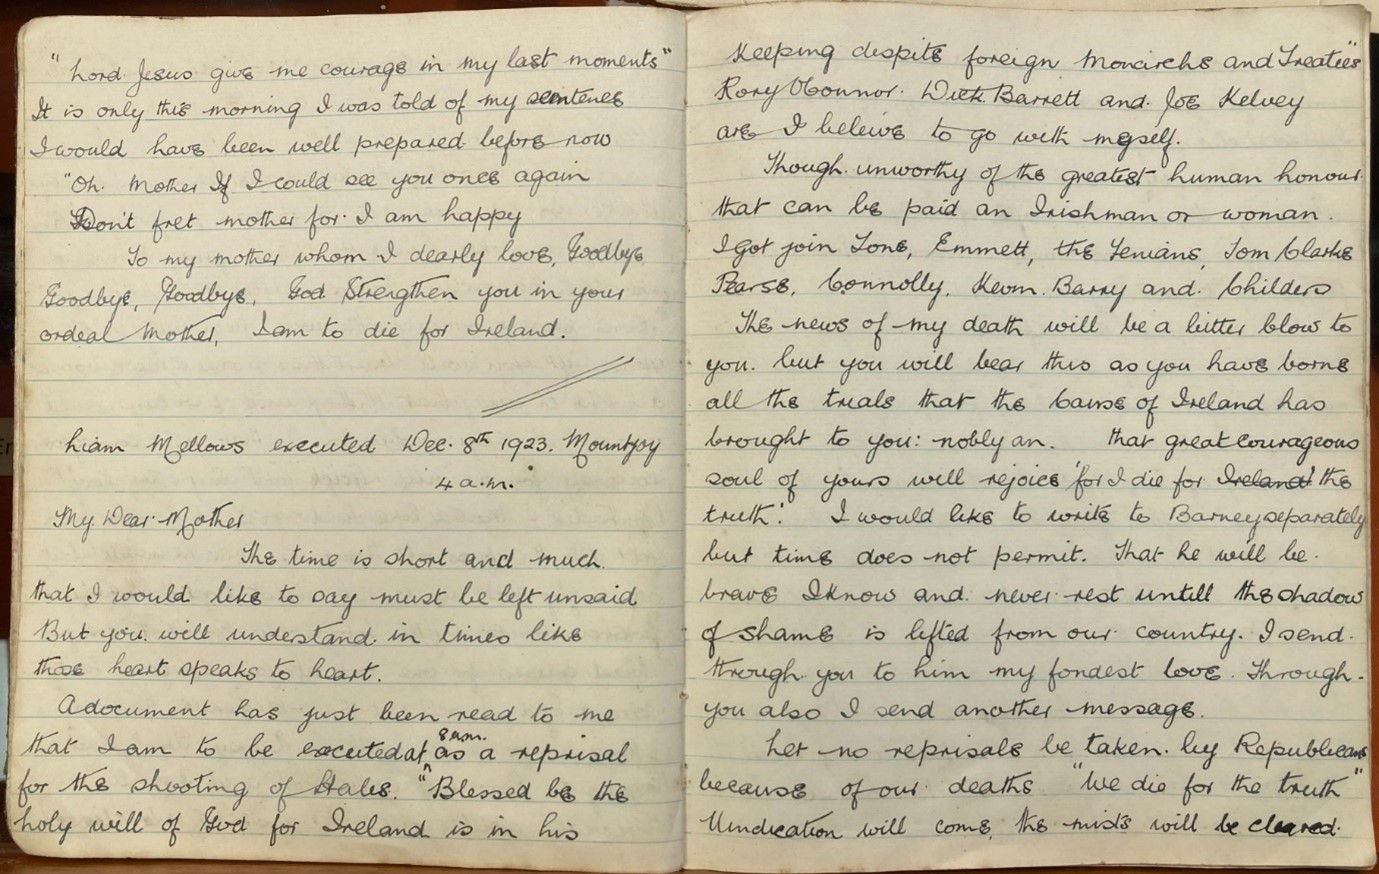 "Lord Jesus give me courage in my last moments"
It is only this morning I was told of my sentence
I would have been well prepared before now
"Oh. Mother If I could see you once again
Don't fret mother for I am happy
To my mother whom I dearly love, Goodbye
Goodbye, Goodbye, God Strengthen you in your
ordeal Mother, I am to die for Ireland.
Liam Mellows executed Dec. 8th 1923. Mountjoy
4 a.m.
My Dear Mother
The time is short and much
that I would like to say must be left unsaid
But you will understand in times like
those heart speaks to heart.
A document has just been read to me
that I am to be executed at 8 a.m. as a reprisal
for the shooting of Hales. "Blessed be the
holy will of God for Ireland is in his
Keeping despite foreign Monarchs and Treaties"
Rory O'Connor. Dick Barrett and Joe Kelvey
are I beleive to go with myself.
Though unworthy of the greatest human honour
that can be paid an Irishman or woman.
I got join Tone, Emmett, the Fenians, Tom Clarke
Pearse, Connolly, Kevin Barry and Childers
The news of my death will be a bitter blow to
you. but you will bear this as you have borne
all the trials that the Cause of Ireland has
brought to you: nobly an. that great courageous
soul of yours will rejoice 'for I die for Ireland' the
truth'. I would like to write to Barney separately
but time does not permit. That he will be
brave I know and never rest untill the shadow
of shame is lifted from our country. I send
through you to him my fondest love. Through
you also I send another message.
Let no reprisals be taken by Republicans
because of our deaths "we die for the truth"
Vindication will come, the mists will be cleared.